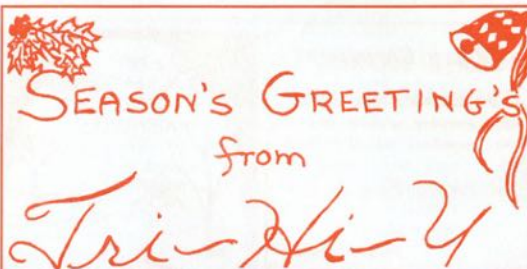 SEASON'S GREETING'S
from
Tri-Hi-Y